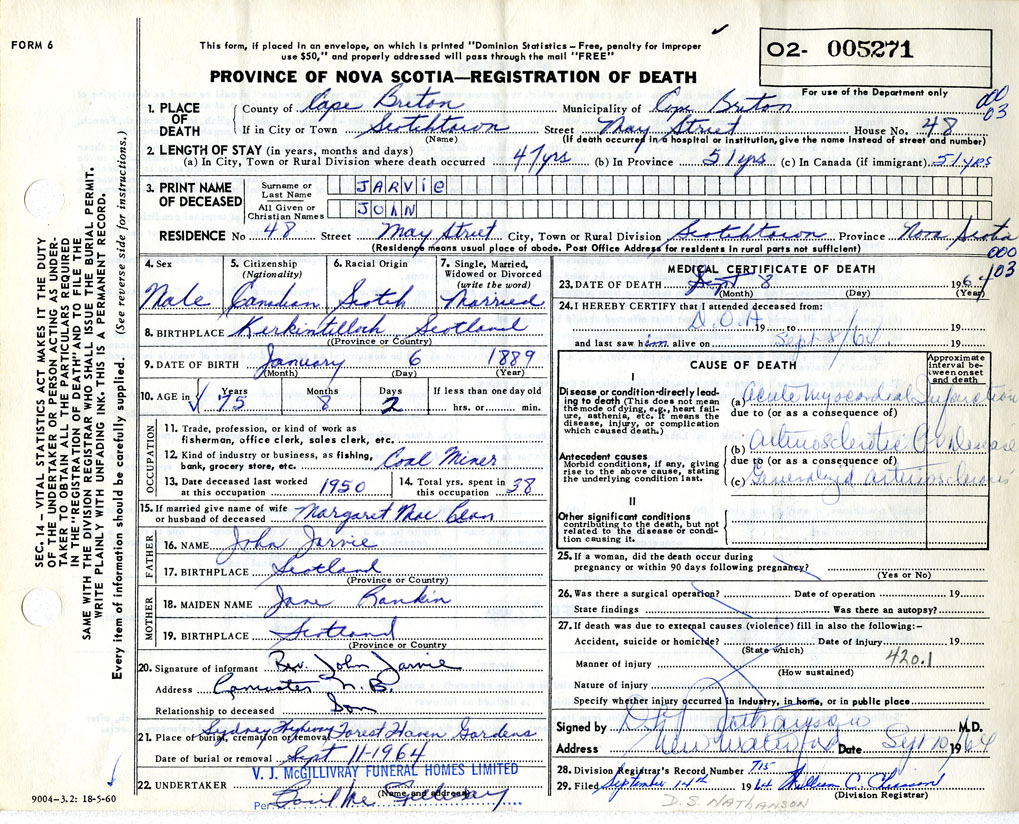 FORM 6
This form, if placed in an envelope, on which is printed "Dominion Statistics – Free, penalty for improper
use $50," and properly addressed will pass through the mail "FREE"
O2- 005271
PROVINCE OF NOVA SCOTIA—REGISTRATION OF DEATH
For use of the Department only
000
03
1. PLACE OF DEATH
County of Cape Breton Municipality of Cape Breton
If in City or Town Scotchtown Street May Street House No. 48
(Name) (If death occurred in a hospital or institution, give the name instead of street and number)
2. LENGTH OF STAY (in years, months and days)
(a) In City, Town or Rural Division where death occurred 47yrs (b) In Province 51yrs (c) In Canada (if immigrant) 51yrs
3. PRINT NAME OF DECEASED
Surname or Last Name JARVIE
All Given or Christian Names JOHN
RESIDENCE No 48 Street May Street City, Town or Rural Division Scotchtown Province Nova Scotia
(Residence means usual place of abode. Post Office Address for residents in rural parts not sufficient)
000
103
4. Sex 5. Citizenship (Nationality) 6. Racial Origin 7. Single, Married, Widowed or Divorced (write the word)
Male Canadian Scotch Married
8. BIRTHPLACE Kerkintilloch Scotland
(Province or Country)
9. DATE OF BIRTH January 6 1889
(Month) (Day) (Year)
10. AGE in Years Months Days If less than one day old
75 8 2 hrs. or min.
OCCUPATION
11. Trade, profession, or kind of work as
fisherman, office clerk, sales clerk, etc.
12. Kind of industry or business, as fishing,
bank, grocery store, etc. Coal Miner
13. Date deceased last worked at this occupation 1950 14. Total yrs. spent in this occupation 38
15. If married give name of wife
or husband of deceased Margaret MacLean
FATHER
16. NAME John Jarvie
17. BIRTHPLACE Scotland
(Province or Country)
MOTHER
18. MAIDEN NAME Jane Rankin
19. BIRTHPLACE Scotland
(Province or Country)
20. Signature of informant Rev. John Jarvie
Address N.B.
Relationship to deceased Son
21. Place of burial, cremation or removal Sydney Highway Forest Haven Gardens
Date of burial or removal Sept 11-1964
V. J. McGILLIVRAY FUNERAL HOMES LIMITED
22. UNDERTAKER
(Name and address)
Per.
9004-3.2: 18-5-60
MEDICAL CERTIFICATE OF DEATH
23. DATE OF DEATH Sept 8 1964
(Month) (Day) (Year)
24. I HEREBY CERTIFY that I attended deceased from:
D.O.A 19 to 19
and last saw him alive on Sept 8/64. 19
CAUSE OF DEATH
Approximate interval between onset and death
I
Disease or condition directly leading to death (This does not mean the mode of dying, e.g., heart failure, asthenia, etc. It means the disease, injury, or complication which caused death.)
(a) Acute Myocardial Infarction
due to (or as a consequence of)
Antecedent causes
Morbid conditions, if any, giving rise to the above cause, stating the underlying condition last.
(b) Arteriosclerotic Disease
due to (or as a consequence of)
(c) Generalized arteriosclerosis
II
Other significant conditions
contributing to the death, but not related to the disease or condition causing it.
25. If a woman, did the death occur during
pregnancy or within 90 days following pregnancy?
(Yes or No)
26. Was there a surgical operation? Date of operation 19
State findings Was there an autopsy?
27. If death was due to external causes (violence) fill in also the following:-
Accident, suicide or homicide? Date of injury 19
(State which)
420.1
Manner of injury
(How sustained)
Nature of injury
Specify whether injury occurred in industry, in home, or in public place
Signed by D S Nathanson M.D.
Address New Waterford Date Sept 10 1964
28. Division Registrar's Record Number 715
29. Filed September 14th 1964 William C.
(Division Registrar)
D.S. NATHANSON
SEC. 14 – VITAL STATISTICS ACT MAKES IT THE DUTY
OF THE UNDERTAKER OR PERSON ACTING AS UNDER-
TAKER TO OBTAIN ALL THE PARTICULARS REQUIRED
IN THE "REGISTRATION OF DEATH" AND TO FILE THE
SAME WITH THE DIVISION REGISTRAR WHO SHALL ISSUE THE BURIAL PERMIT.
WRITE PLAINLY WITH UNFADING INK. THIS IS A PERMANENT RECORD.
Every item of information should be carefully supplied. (See reverse side for instructions.)